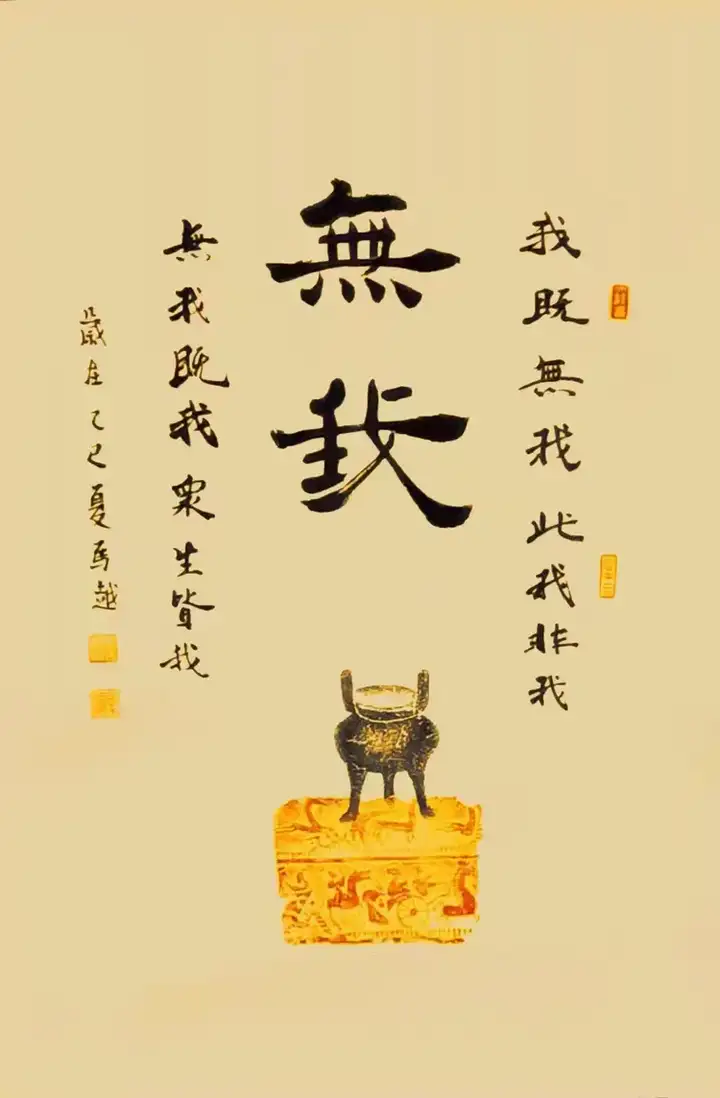 無我
我既無我此我非我
無我既我衆生皆我
歲在乙巳夏馬越